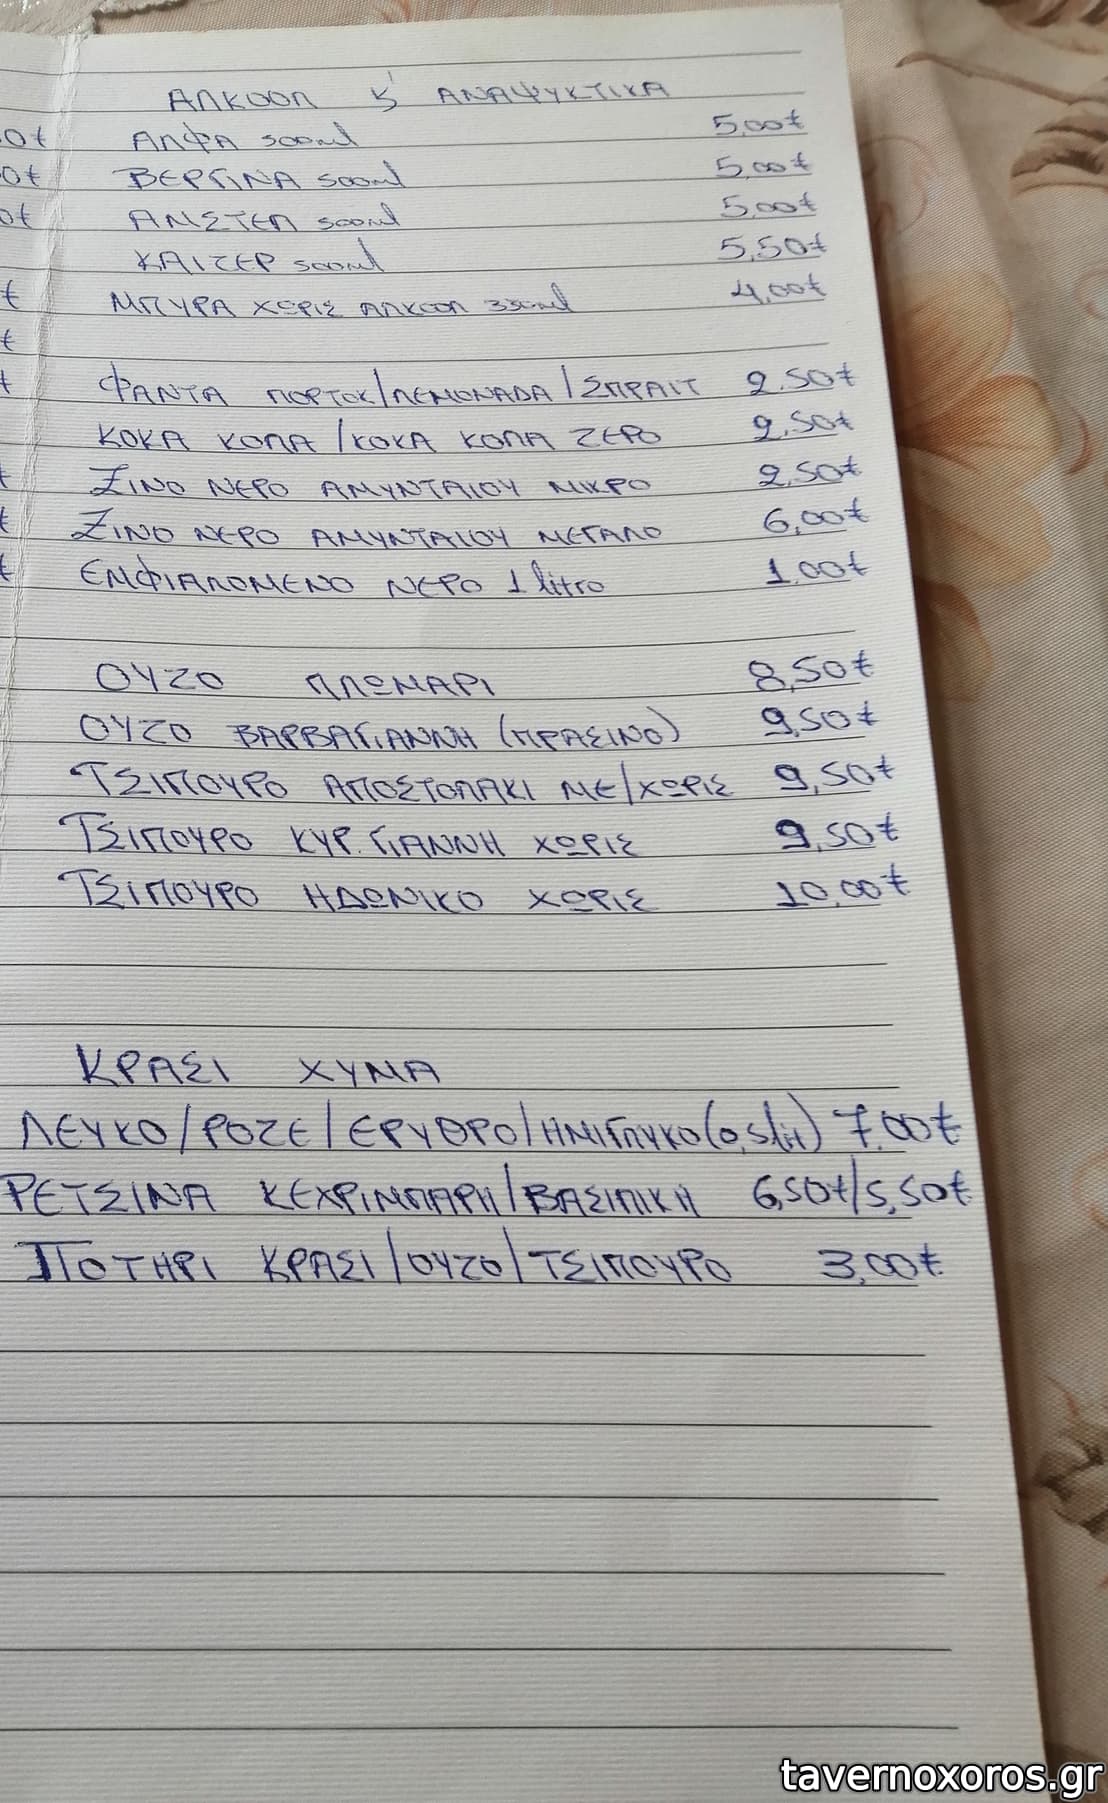 ΑΛΚΟΟΛ Κ' ΑΝΑΨΥΚΤΙΚΑ
ΑΛΦΑ 500ml 5,00€
ΒΕΡΓΙΝΑ 500ml 5,00€
ΑΜΣΤΕΛ 500ml 5,00€
ΚΑΙΖΕΡ 500ml 5,50€
ΜΠΥΡΑ ΧΩΡΙΣ ΑΛΚΟΟΛ 330ml 4,00€
ΦΑΝΤΑ ΠΟΡΤΟΚ/ΛΕΜΟΝΑΔΑ/ΣΠΡΑΙΤ 2.50€
ΚΟΚΑ ΚΟΛΑ/ΚΟΚΑ ΚΟΛΑ ΖΕΡΟ 2,50€
ΞΙΝΟ ΝΕΡΟ ΑΜΥΝΤΑΙΟΥ ΜΙΚΡΟ 2,50€
ΞΙΝΟ ΝΕΡΟ ΑΜΥΝΤΑΙΟΥ ΜΕΓΑΛΟ 6,00€
ΕΜΦΙΑΛΩΜΕΝΟ ΝΕΡΟ 1 litro 1,00€
ΟΥΖΟ ΠΛΩΜΑΡΙ 8,50€
ΟΥΖΟ ΒΑΡΒΑΓΙΑΝΝΗ (ΠΡΑΣΙΝΟ) 9,50€
ΤΣΙΠΟΥΡΟ ΑΠΟΣΤΟΛΑΚΙ ΜΕ/ΧΩΡΙΣ 9,50€
ΤΣΙΠΟΥΡΟ ΚΥΡ.ΓΙΑΝΝΗ ΧΩΡΙΣ 9,50€
ΤΣΙΠΟΥΡΟ ΗΔΩΝΙΚΟ ΧΩΡΙΣ 10,00€
ΚΡΑΣΙ ΧΥΜΑ
ΛΕΥΚΟ/ΡΟΖΕ/ΕΡΥΘΡΟ/ΗΜΙΓΛΥΚΟ(0,5lit) 7,00€
ΡΕΤΣΙΝΑ ΚΕΧΡΙΜΠΑΡΗ/ΒΑΣΙΛΙΚΗ 6,50€/5,50€
ΠΟΤΗΡΙ ΚΡΑΣΙ/ΟΥΖΟ/ΤΣΙΠΟΥΡΟ 3,00€
tavernoxoros.gr